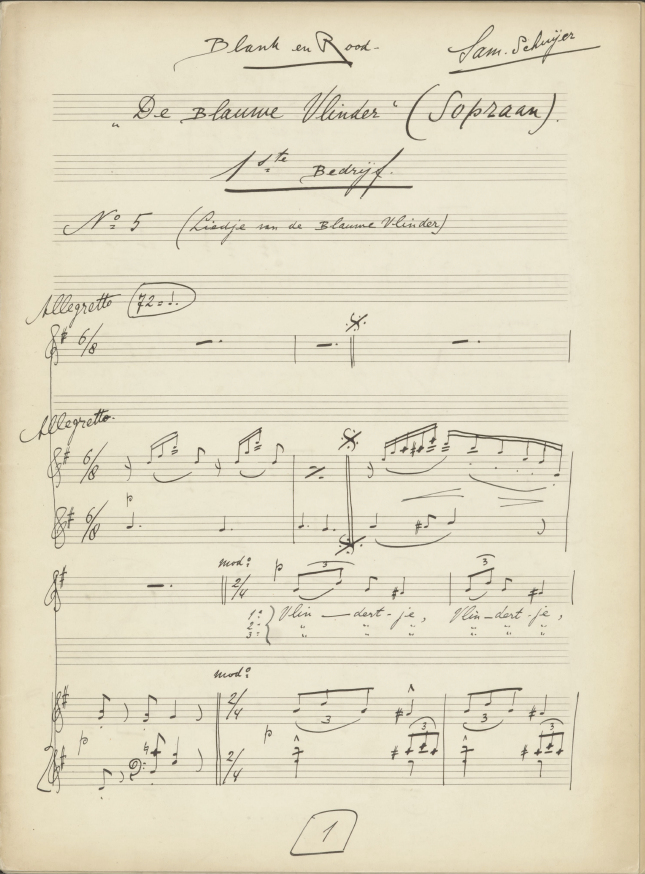 Blank en Rood.
Sam. Schuijer
„De Blauwe Vlinder“ (Sopraan).
1ste Bedrijf.
No 5 (Liedje van de Blauwe Vlinder)
Allegretto 72=♩.
6/8
Allegretto.
6/8
p
6/8
mod:o
2/4
p
3
3
1o Vlin—dert-je, Vlin-dert-je,
2o " " " " " "
3o " " " " " "
mod:o
2/4
3
3
p
p
3
3
4
2/4
1